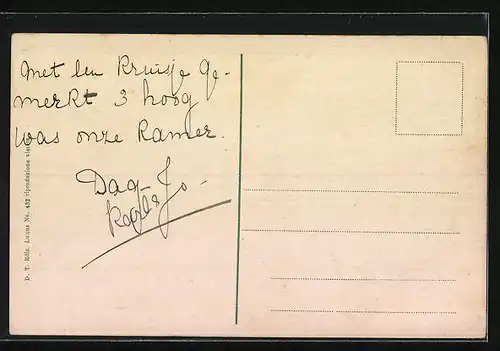 Met een Kruisje ge-
merkt 3 hoog
was onze Kamer.
Dag
Jo -
D. T. Edln. Luzne No. 432